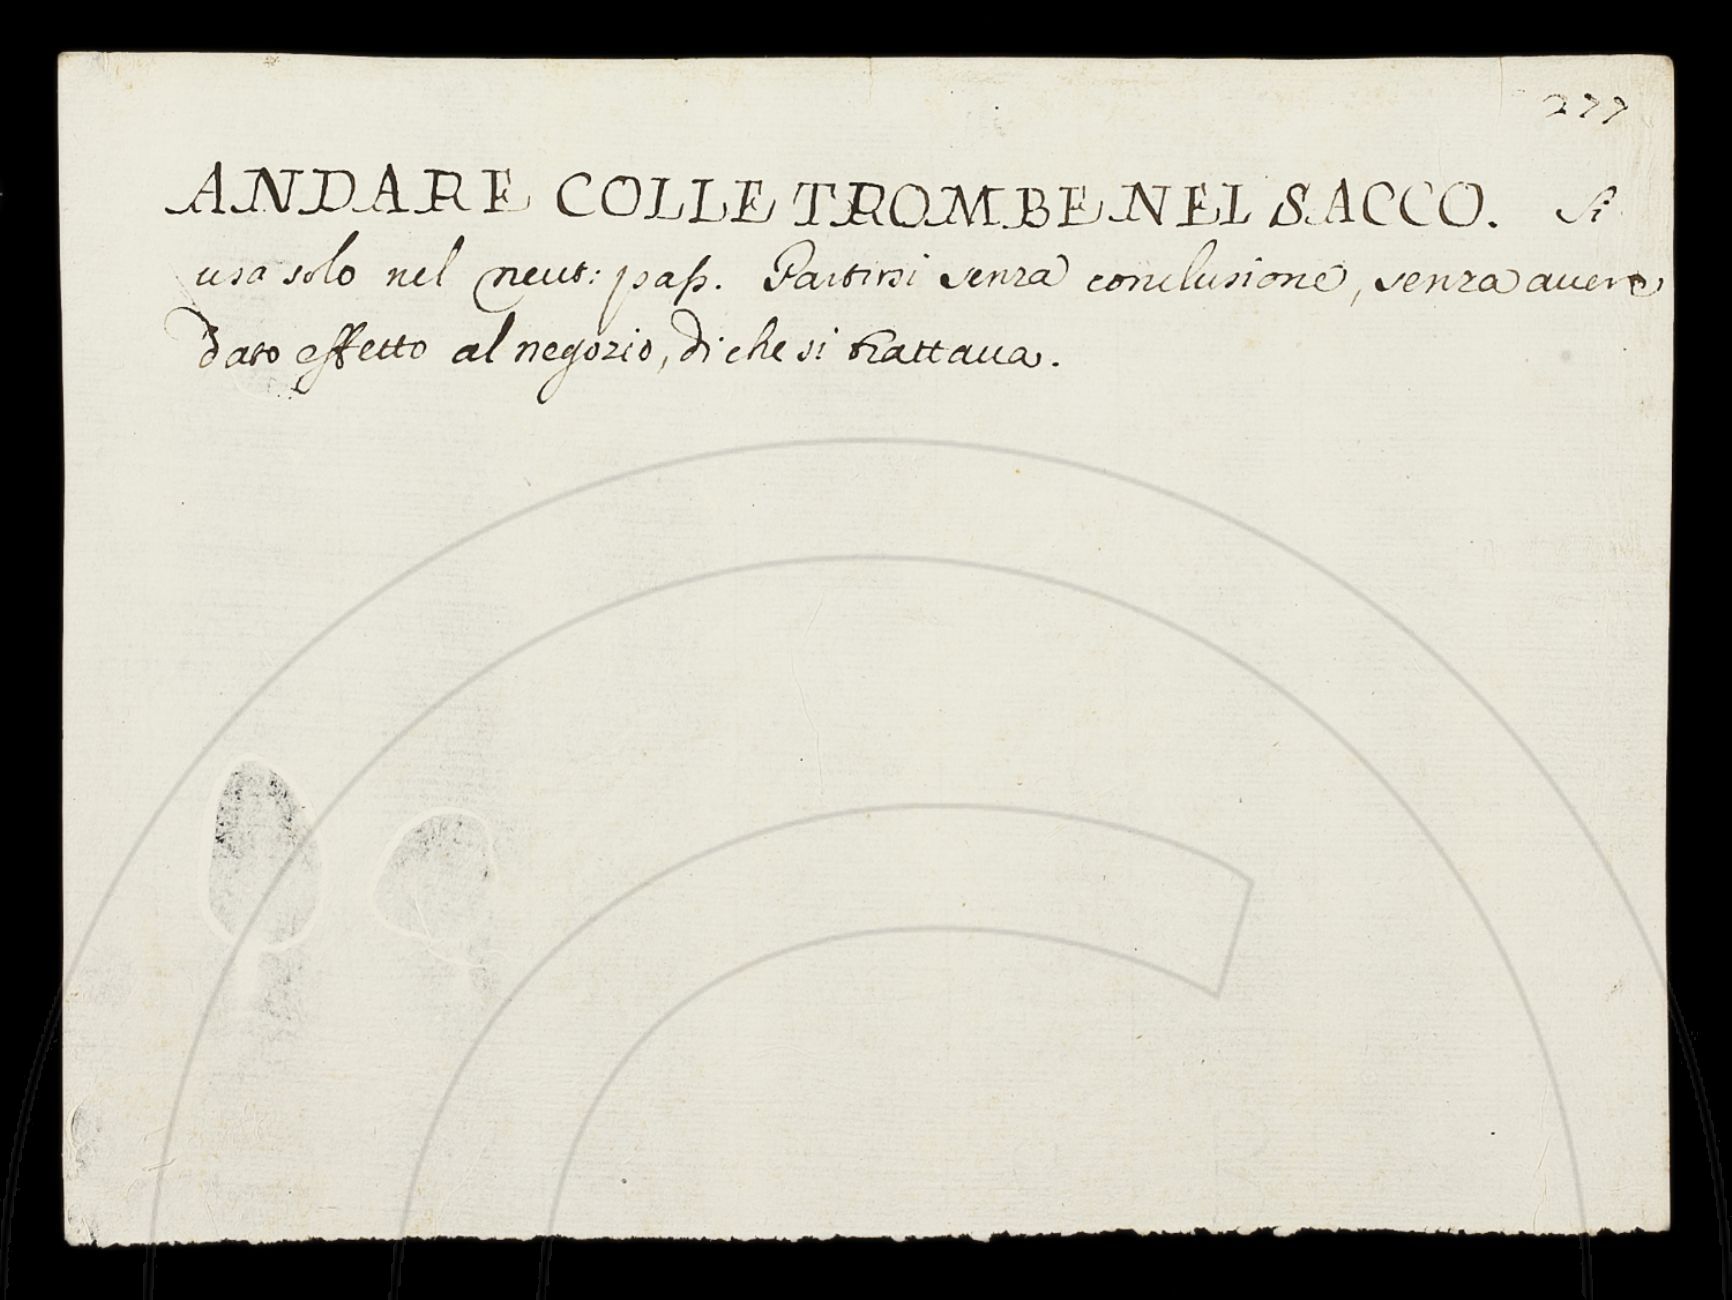 277
ANDARE COLLE TROMBE NEL SACCO. Si
usa solo nel neut: pass. Partirsi senza conclusione, senza avere
dato effetto al negozio, di che si trattaua.